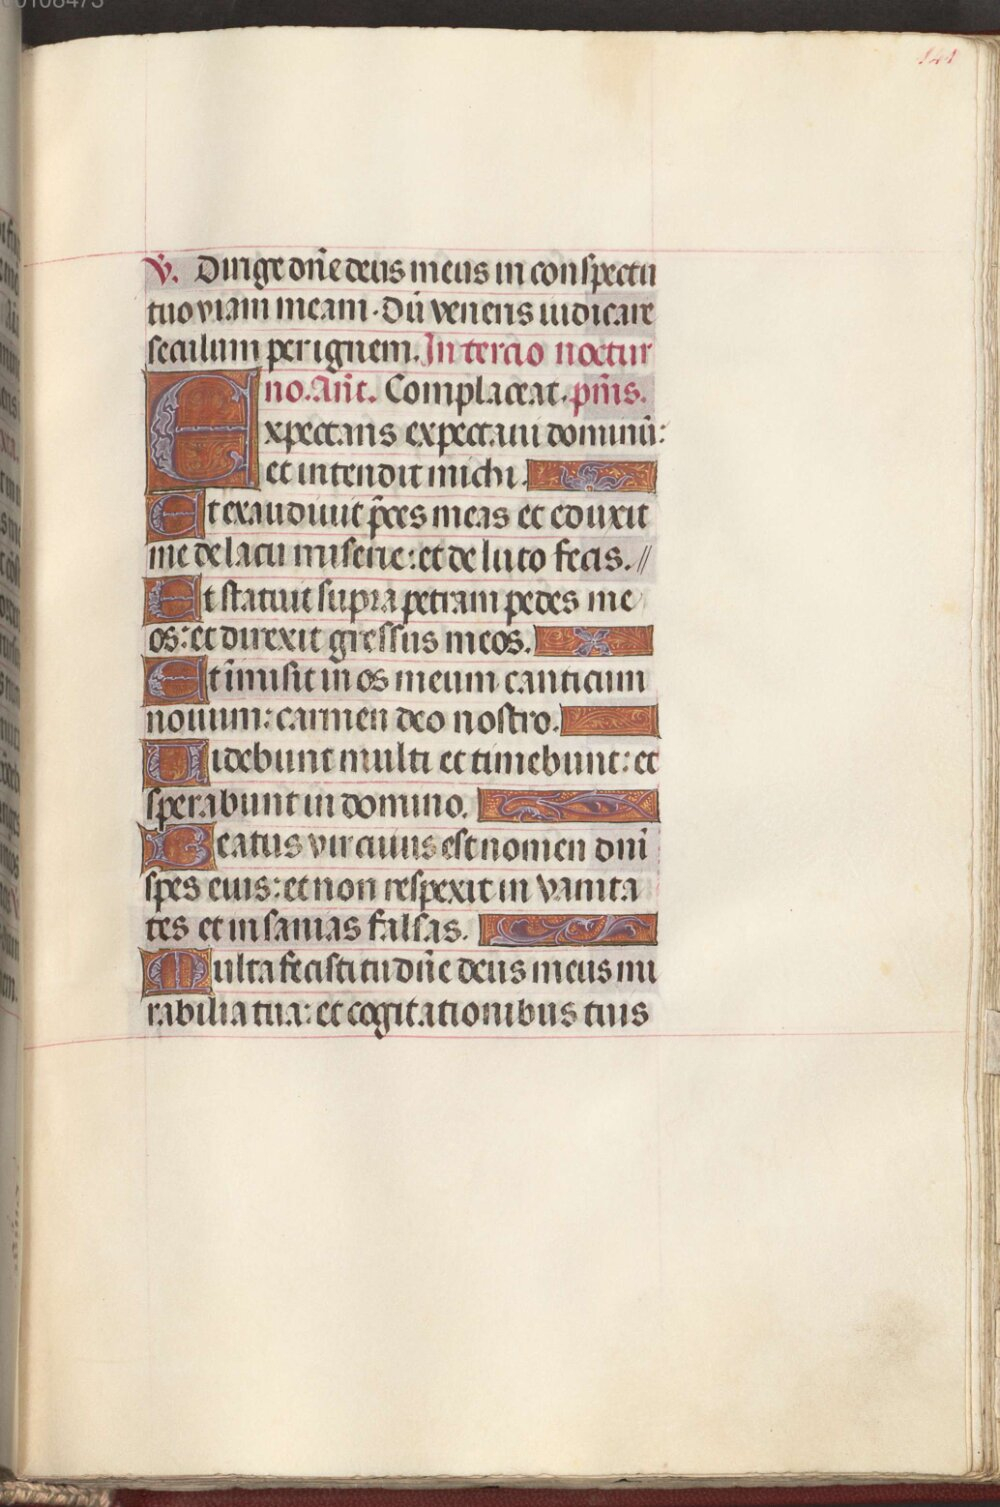 141
V. Dirige dñe deus meus in conspectu
tuo viam meam. Dũ veneris iudicare
seculum per ignem. In tercio noctur
no. Añt. Complaceat. pm̃s.
Expectans expectaui dominũ:
et intendit michi.
Et exaudiuit p̃ces meas et eduxit
me de lacu miserie: et de luto fecis. //
Et statuit supra petram pedes me
os: et direxit gressus meos.
Et ĩmisit in os meum canticum
nouum: carmen deo nostro.
Uidebunt multi et timebunt: et
sperabunt in domino.
Beatus vir cuius est nomen dñi
spes eius: et non respexit in vanita
tes et insanias falsas.
Multa fecisti tu dñe deus meus mi
rabilia tua: et cogitationibus tuis